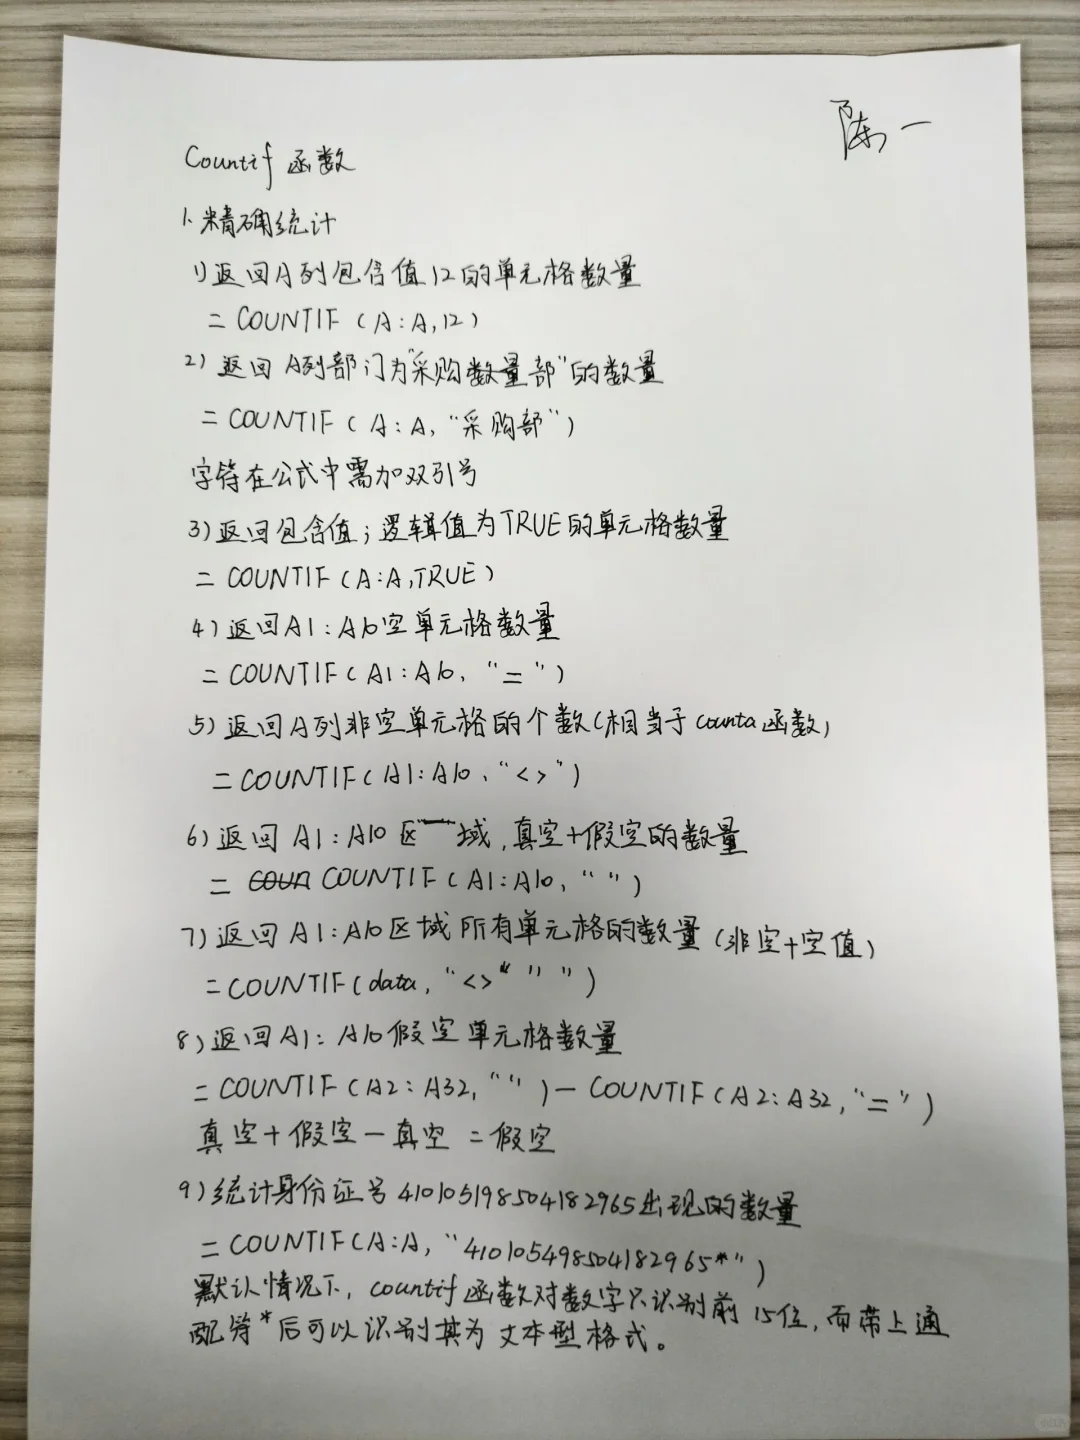 陈一
Countif 函数
1.精确统计
1)返回A列包含值12的单元格数量
=COUNTIF(A:A,12)
2)返回A列部门为"采购数量部"的数量
=COUNTIF(A:A,"采购部")
字符在公式中需加双引号
3)返回包含值;逻辑值为TRUE的单元格数量
=COUNTIF(A:A,TRUE)
4)返回A1:A10空单元格数量
=COUNTIF(A1:A10,"=")
5)返回A列非空单元格的个数(相当于counta函数)
=COUNTIF(A1:A10,"<>")
6)返回A1:A10区域,真空+假空的数量
=COUNTIF(A1:A10,"")
7)返回A1:A10区域所有单元格的数量(非空+空值)
=COUNTIF(data,"<>*" ")
8)返回A1:A10假空单元格数量
=COUNTIF(A2:A32,"")-COUNTIF(A2:A32,"=")
真空+假空-真空=假空
9)统计身份证号410105198504182965出现的数量
=COUNTIF(A:A,"410105498504182965*")
默认情况下,countif函数对数字只识别前15位,而带上通
配符*后可以识别其为文本型格式。